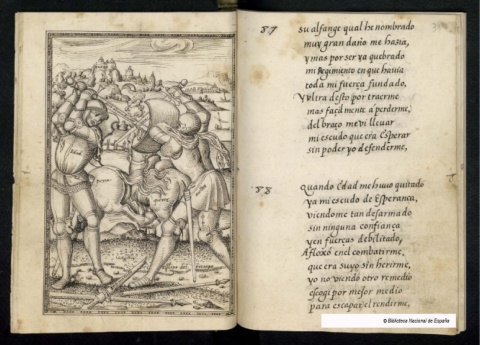 87 su alfange qual he nombrado
muy gran daño me hazia,
y mas por ser ya quebrado
mi Regimento en que hauia
toda mi fuerça fundado,
Y ultra desto por traerme
mas facilmente a perderme,
del braço me vi lleuar
mi escudo que era Esperar
sin poder yo defenderme,
88 Quando Edad me huuo quitado
ya mi escudo de Esperança,
viendome tan desarmado
sin ninguna confiança
y en fuerças debilitado,
Afloxò en el combatirme,
que era suyo sin herirme,
yo no viendo otro remedio
escogi por mejor medio
para escapar el rendirme,
© Biblioteca Nacional de España